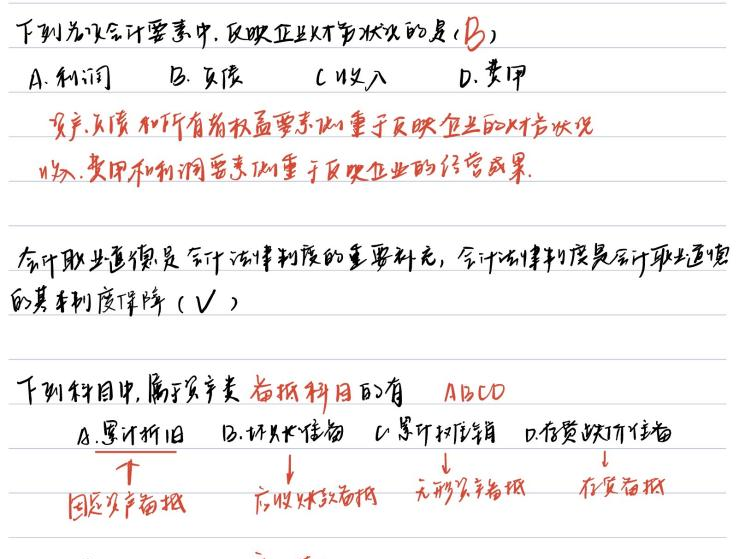 下列各项会计要素中,反映企业财务状况的是(B)
A.利润 B.负债 C收入 D.费用
资产、负债和所有者权益要素侧重于反映企业的财务状况
收入、费用和利润要素侧重于反映企业的经营成果.
会计职业道德是会计法律制度的重要补充,会计法律制度是会计职业道德
的基本制度保障(√)
下列科目中,属于资产类备抵科目的有 ABCD
A.累计折旧 B.坏账准备 C累计摊销 D.存货跌价准备
固定资产备抵 应收账款备抵 无形资产备抵 存货备抵